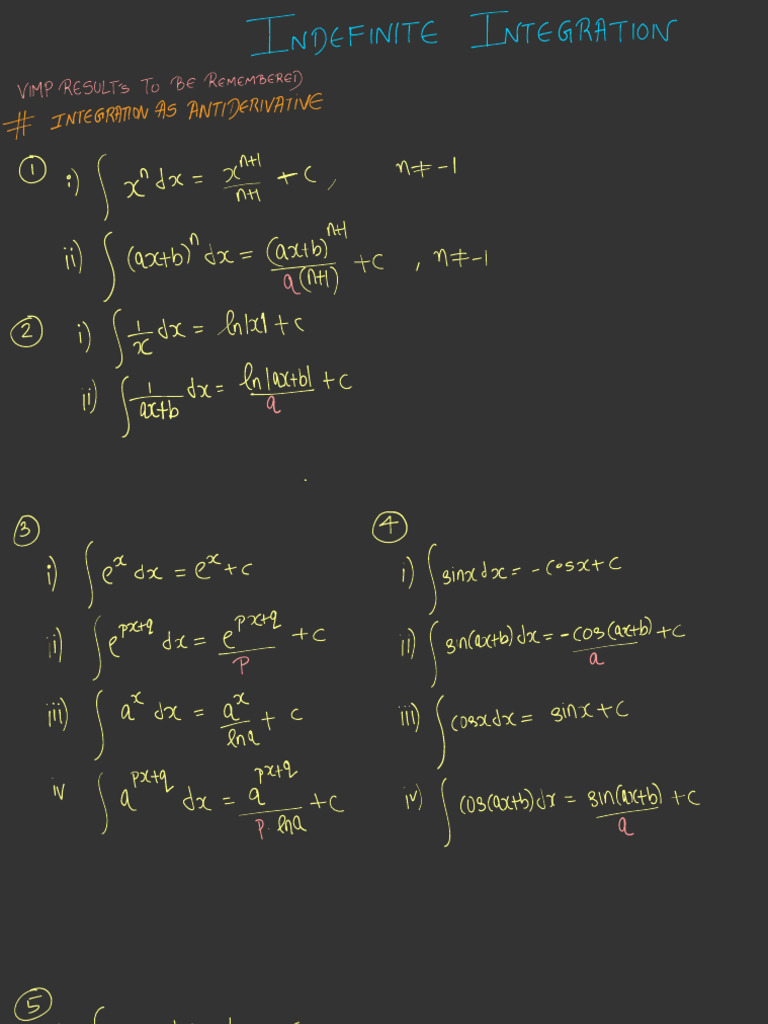 INDEFINITE INTEGRATION
VIMP RESULTS TO BE REMEMBERED
# INTEGRATION AS ANTIDERIVATIVE
① i) ∫ xⁿ dx = xⁿ⁺¹/(n+1) + c, n ≠ -1
ii) ∫ (ax+b)ⁿ dx = (ax+b)ⁿ⁺¹/(a(n+1)) + c, n ≠ -1
② i) ∫ 1/x dx = ln|x| + c
ii) ∫ 1/(ax+b) dx = ln|ax+b|/a + c
③
i) ∫ e^x dx = e^x + c
ii) ∫ e^(px+q) dx = e^(px+q)/p + c
iii) ∫ a^x dx = a^x/lna + c
iv ∫ a^(px+q) dx = a^(px+q)/(p·lna) + c
④
i) ∫ sinx dx = -cosx + c
ii) ∫ sin(ax+b) dx = -cos(ax+b)/a + c
iii) ∫ cosx dx = sinx + c
iv) ∫ cos(ax+b) dx = sin(ax+b)/a + c
⑤